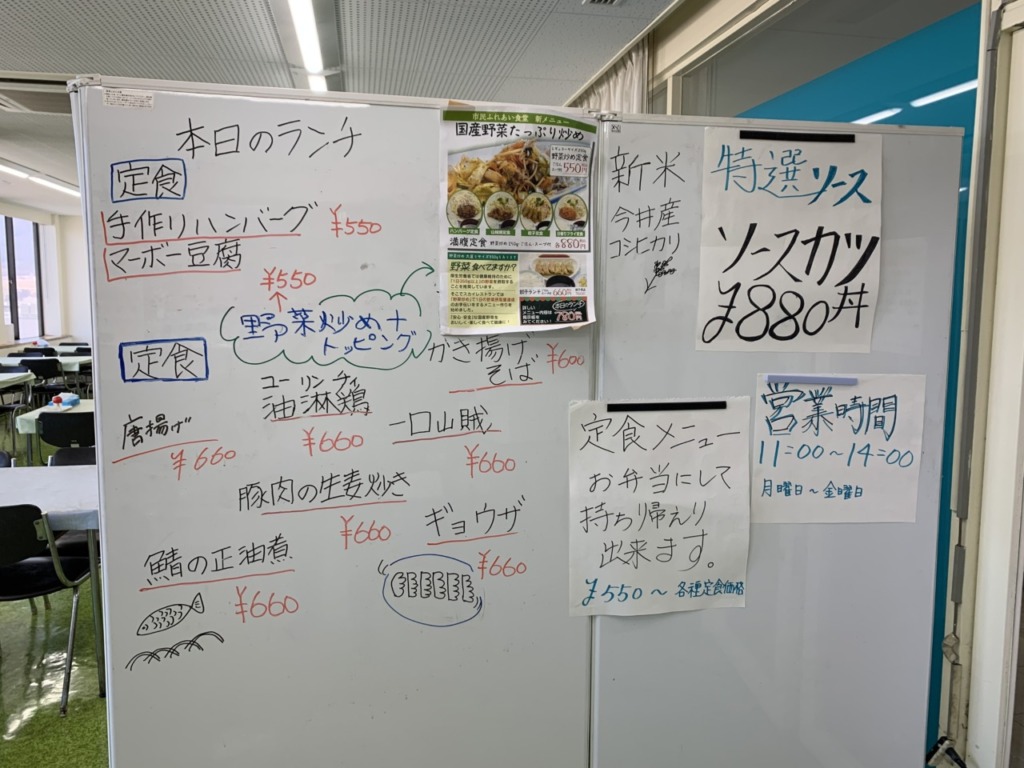 本日のランチ
定食
手作りハンバーグ
マーボー豆腐
¥550
¥550
野菜炒め+
トッピング
定食
唐揚げ
¥660
ユーリンチィ
油淋鶏
¥660
かき揚げ
そば
¥600
一口山賊
¥660
豚肉の生麦炒き
¥660
ギョウザ
¥660
鯖の正油煮
¥660
市民ふれあい食堂 新メニュー
国産野菜たっぷり炒め
野菜炒め定食
550円
満腹定食
880円
野菜食べてますか?
660円
780円
新米
今井産
コシヒカリ
特選ソース
ソースカツ
丼
¥880
定食メニュー
お弁当にして
持ち帰えり
出来ます。
¥550～各種定食価格
営業時間
11:00～14:00
月曜日～金曜日